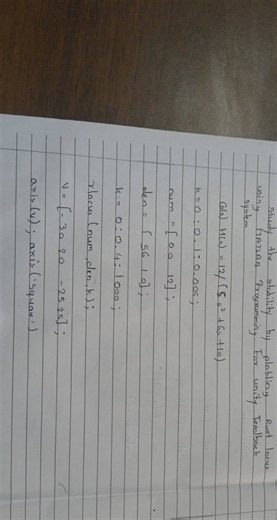 Study the stability by plotting Root locus
using MATLAB Programming For unity Feedback
system
G(s) H(s) = 12/(5s²+6s+10)
k=0:0.1:0.005;
num = [0 0 12];
den = [ 56 10];
k = 0:0.4:1000;
rlocus (num,den,k);
V = [-30 20 -25 25];
axis(v); axis('square')